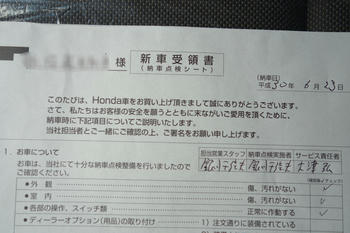 様
新車受領書
(納車点検シート)
(納車日)
平成30年6月23日
このたびは、Honda車をお買い上げ頂きまして誠にありがとうございます。
さて、私たちはお客様の安全を願うとともに末ながいご愛用を頂くために、
納車時に下記項目についてご説明いたします。
当社担当者とご一緒にご確認の上、ご署名をお願い申し上げます。
1. お車について
担当営業スタッフ 納車点検実施者 サービス責任者
お車は、当社にて十分な納車点検整備を行いましたので
ご確認ください。
●外観 傷、汚れがない
●室内 傷、汚れがない
●各部の操作、スイッチ類 正常に作動する
●ディーラーオプション(用品)の取り付け 1)注文通りに装着されている